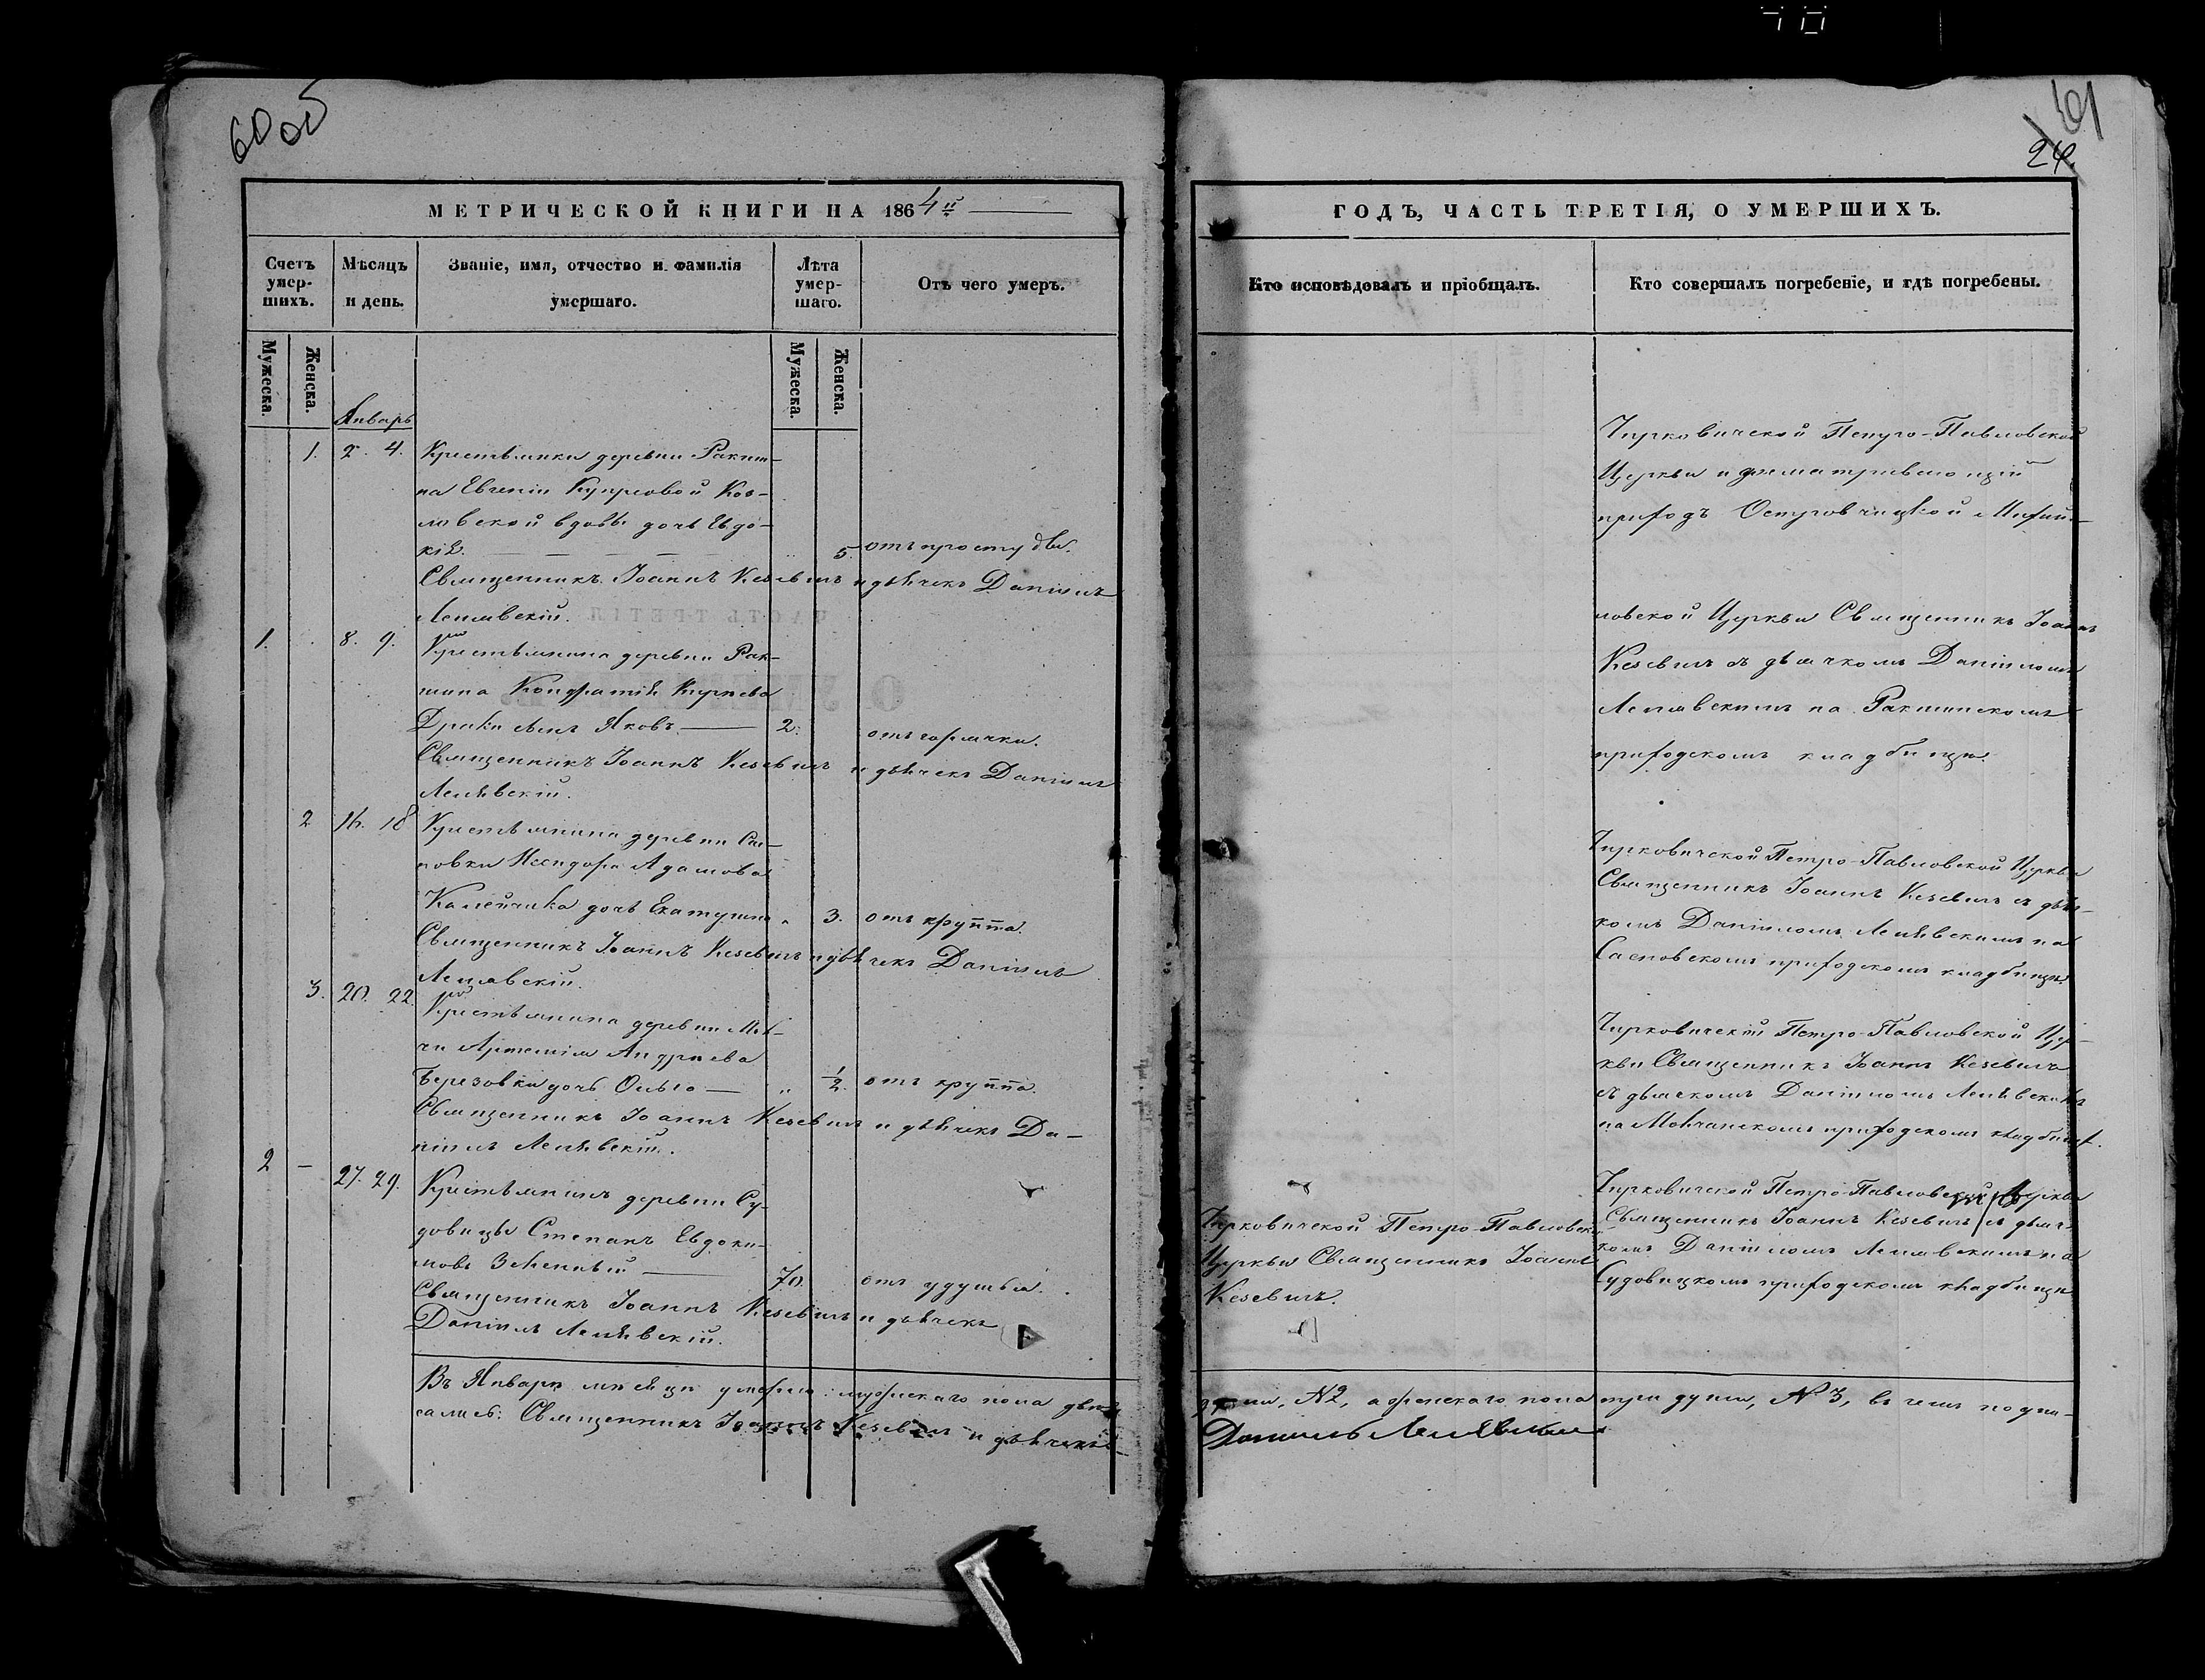 60 об
61
24.
МЕТРИЧЕСКОЙ КНИГИ НА 1864й
ГОДЪ, ЧАСТЬ ТРЕТІЯ, О УМЕРШИХЪ.
Счетъ умер-шихъ.
Мѣсяцъ и день.
Званіе, имя, отчество и фамилія умершаго.
Лѣта умер-шаго.
Отъ чего умеръ.
Кто исповѣдовалъ и пріобщалъ.
Кто совершалъ погребеніе, и гдѣ погребены.
Мужеска.
Женска.
Мужеска.
Женска.
Январь
1. 2. 4. Крестьянки деревни
на Евгеніи
вдовы дочь Евдо-
кія. 5. отъ простуды.
Священникъ Іоаннъ Кезевичъ и дьячекъ Даніилъ
Лелявскій.
Чирковичской Петро-Павловской
Церкви и
приходъ
ловской Церкви Священникъ Іоаннъ
Кезевичъ съ дьячкомъ Даніиломъ
Лелявскимъ на
приходскомъ кладбищѣ.
1. 8. 9. Крестьянина деревни Рак-
шина Кондратія
сынъ Яковъ 2. отъ горячки.
Священникъ Іоаннъ Кезевичъ и дьячекъ Даніилъ
Лелявскій.
2 16. 18 Крестьянина деревни Сас-
новки Исидора Адамова
Калейчика дочь Екатерина „ 3. отъ круппа.
Священникъ Іоаннъ Кезевичъ и дьячекъ Даніилъ
Лелявскій.
Чирковичской Петро-Павловской Церкви
Священникъ Іоаннъ Кезевичъ съ дьяч-
комъ Даніиломъ Лелявскимъ на
Сасновскомъ приходскомъ кладбищѣ.
3. 20. 22. Крестьянина деревни Мол-
чи Артемія Андреева
Березовки дочь Ольга „ 1/2. отъ круппа.
Священникъ Іоаннъ Кезевичъ и дьячекъ Да-
ніилъ Лелявскій.
Чирковичской Петро-Павловской Цер-
кви Священникъ Іоаннъ Кезевичъ
съ дьячкомъ Даніиломъ Лелявскимъ
на Молчанскомъ приходскомъ кладбищѣ.
2 – 27. 29. Крестьянинъ деревни Су-
довицы Степанъ Евдоки-
мовъ 70. отъ удушья.
Священникъ Іоаннъ Кезевичъ и дьячекъ
Даніилъ Лелявскій.
Чирковичской Петро-Павловской
Церкви Священникъ Іоаннъ
Кезевичъ.
Чирковичской Петро-Павловской Церкви
Священникъ Іоаннъ Кезевичъ съ дьяч-
комъ Даніиломъ Лелявскимъ на
Судовицкомъ приходскомъ кладбищѣ
Въ Январѣ мѣсяцѣ умерло: мужескаго пола двѣ
души, №2, а женскаго пола три души, №3, въ чемъ подпи-
сались: Священникъ Іоаннъ Кезевичъ и дьячекъ
Даніилъ Лелявскій